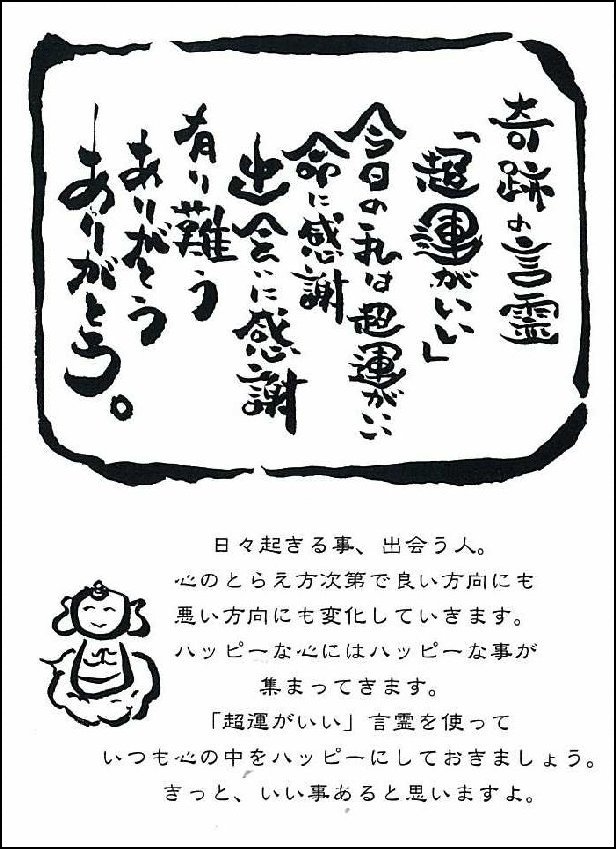 奇跡の言霊
「超運がいい」
今日の私は超運がいい
命に感謝
出会いに感謝
有り難う
ありがとう
ーありがとう。
日々起きる事、出会う人。
心のとらえ方次第で良い方向にも
悪い方向にも変化していきます。
ハッピーな心にはハッピーな事が
集まってきます。
「超運がいい」言霊を使って
いつも心の中をハッピーにしておきましょう。
きっと、いい事あると思いますよ。